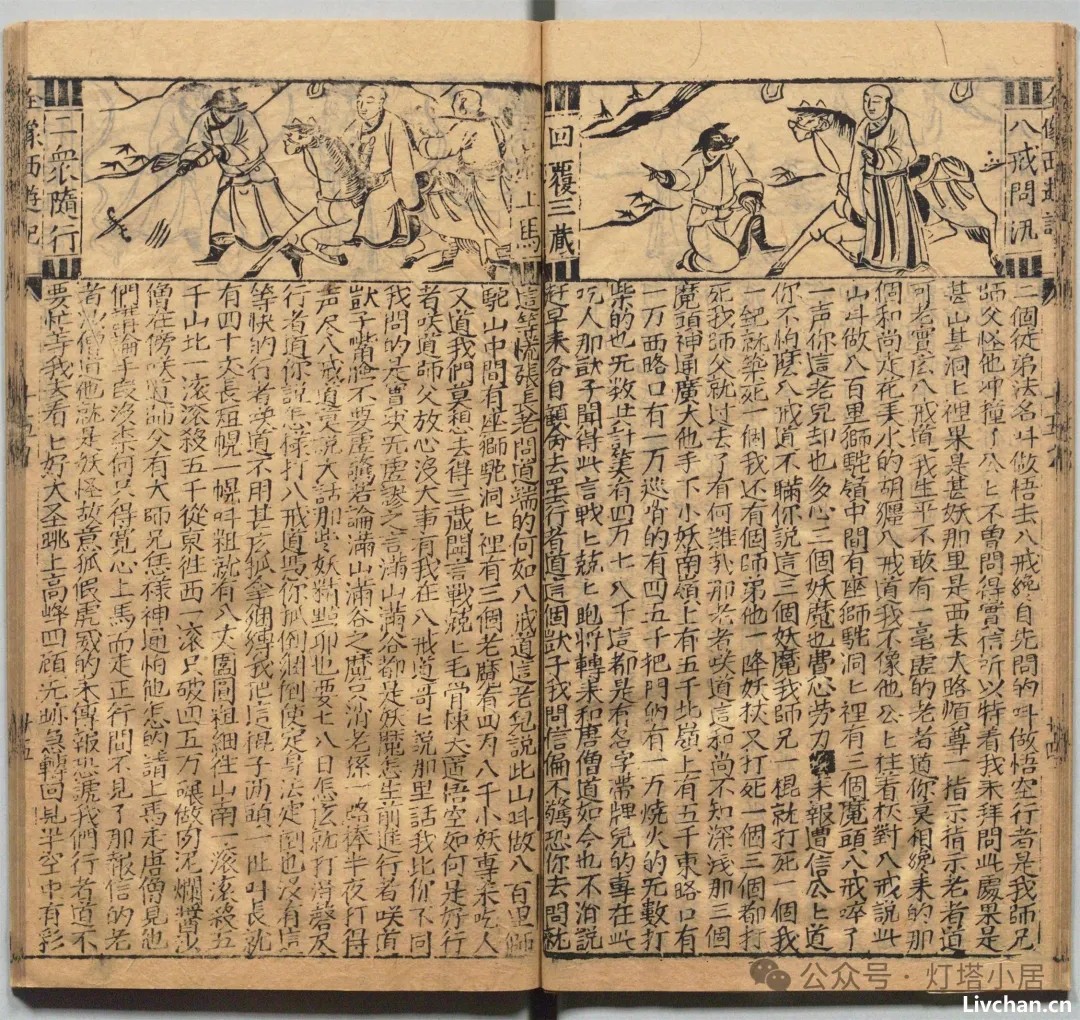 八戒問訊
回覆三藏
二個徒弟法名叫做悟去八戒纔自先問的叫做悟空行者是我師兄
師父怪他冲撞了公匕不曽問得實信所以特着我來拜問此處果是
甚山甚洞匕裡果是甚妖那里是西去大路煩尊一指示指示老者道
可老實庅八戒道我生平不敢有一毫虚的老者道你莫相纔來的那
個和尚走花弄水的胡纏八戒道我不像他公匕拄着杖對八戒説此
山叫做八百里獅駝嶺中間有座獅駝洞匕裡有三個魔頭八戒啐了
一声你這老兒却也多心三個妖魔也費心勞力來報曹信公匕道
你不怕麽八戒道不瞞你説這三個妖魔我師兄一棍就打死一個我
一鈀就築死一個我还有個師弟他一降妖杖又打死一個三個都打
死我師父就過去了有何難㦲那老者咲道這和尚不知深淺那三個
魔頭神通廣大他手下小妖南嶺上有五千北嶺上有五千東路口有
一万西路口有一万巡哨的有四五千把門的有一万燒火的无數打
柴的也无数共計筭有四万七八千這都是有名字帶牌兒的專在此
吃人那獃子聞得此言戰匕兢匕跑將轉來和唐僧道如今也不消説
赶早來各自顧命去罢行者道這個獃子我問信偏不驚恐你去問就
上馬
這等慌張長老問道端的何如八戒道這老兒説此山叫做八百里獅
駝山中間有座獅駝洞匕裡有三個老魔有四万八千小妖專來吃人
又道我們莫想去得三藏聞言戰兢匕毛骨悚大道悟空如何是好行
者咲道師父放心沒大事有我在八戒道哥匕説那里話我比你不同
我問的是實決无虚謬之言滿山滿谷都是妖魔怎生前進行者咲道
獃子嘴臉不要虚驚若論滿山滿谷之魔只消老孫一路棒半夜打得
声尽八戒道莫説大話那些妖精點卯也要七八日怎庅就打得罄尽
行者道你説怎様打八戒道憑你抓倒綑倒使定身法定倒也沒有這
等快的行者笑道不用甚庅抓拿綑縛我把這棍子两頭一扯叫長就
有四十丈長短幌一幌叫粗就有八丈圍圓粗細往山南一滚滚殺五
千山北一滚滚殺五千從東往西一滚只破四五万碾做肉泥爛醬沙
僧在傍咲道師父有大師兄恁様神通怕他怎的請上馬走唐僧見他
們講論手段沒柰何只得寬心上馬而走正行間不見了那報信的老
者沙僧道他就是妖怪故意狐假虎威的來傳報恐諕我們行者道不
要忙等我去看匕好大圣跳上高峰四顧无跡急轉回見半空中有彩
二衆隨行
全像西遊記
公众号·灯塔小居
Livchan.cn